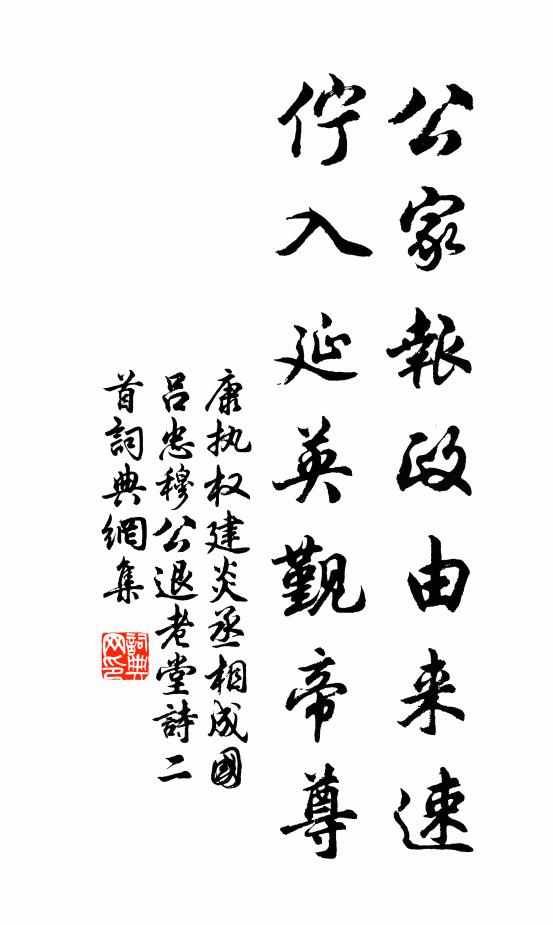 公家報政由来速
佇入延英覲帝尊
康执权建炎丞相成國
吕忠穆公退老堂詩二
首詞典網集
詞典网印